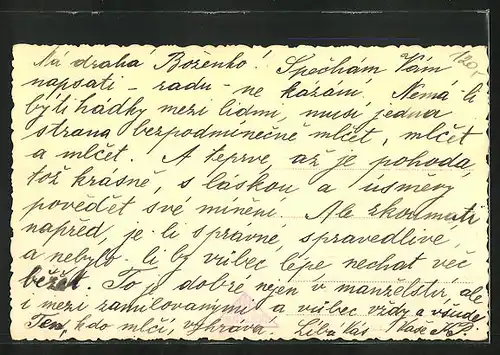 Má drahá Boženko! Spěchám Vám
napsati - radu - ne kázání. Nemá li
býti hádky mezi lidmi, musí jedna
strana bezpodmínečně mlčet, mlčet
a mlčet. A teprve, až je pohoda,
tož krásně, s láskou a úsměvy
povědět své mínění. Ale zkoumati
napřed, je-li správné, spravedlivé,
a nebylo-li by vůbec lépe nechat věc
běžet. To je dobré nejen v manželství, ale
i mezi zamilovanými a vůbec vždy a všude.
Ten, kdo mlčí, vyhrává. Líbá Vás Vaše